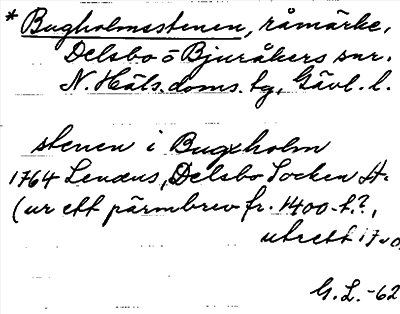 * Bugholmsstenen, råmärke,
Delsbo o Bjuråkers snr.
N. Häls. doms. tg, Gävl. l.
stenen i Bugxholm
1764 Lenæus, Delsbo Socken
(ur ett pärmbrev fr. 1400-t.?,
utrett
G. L. -62